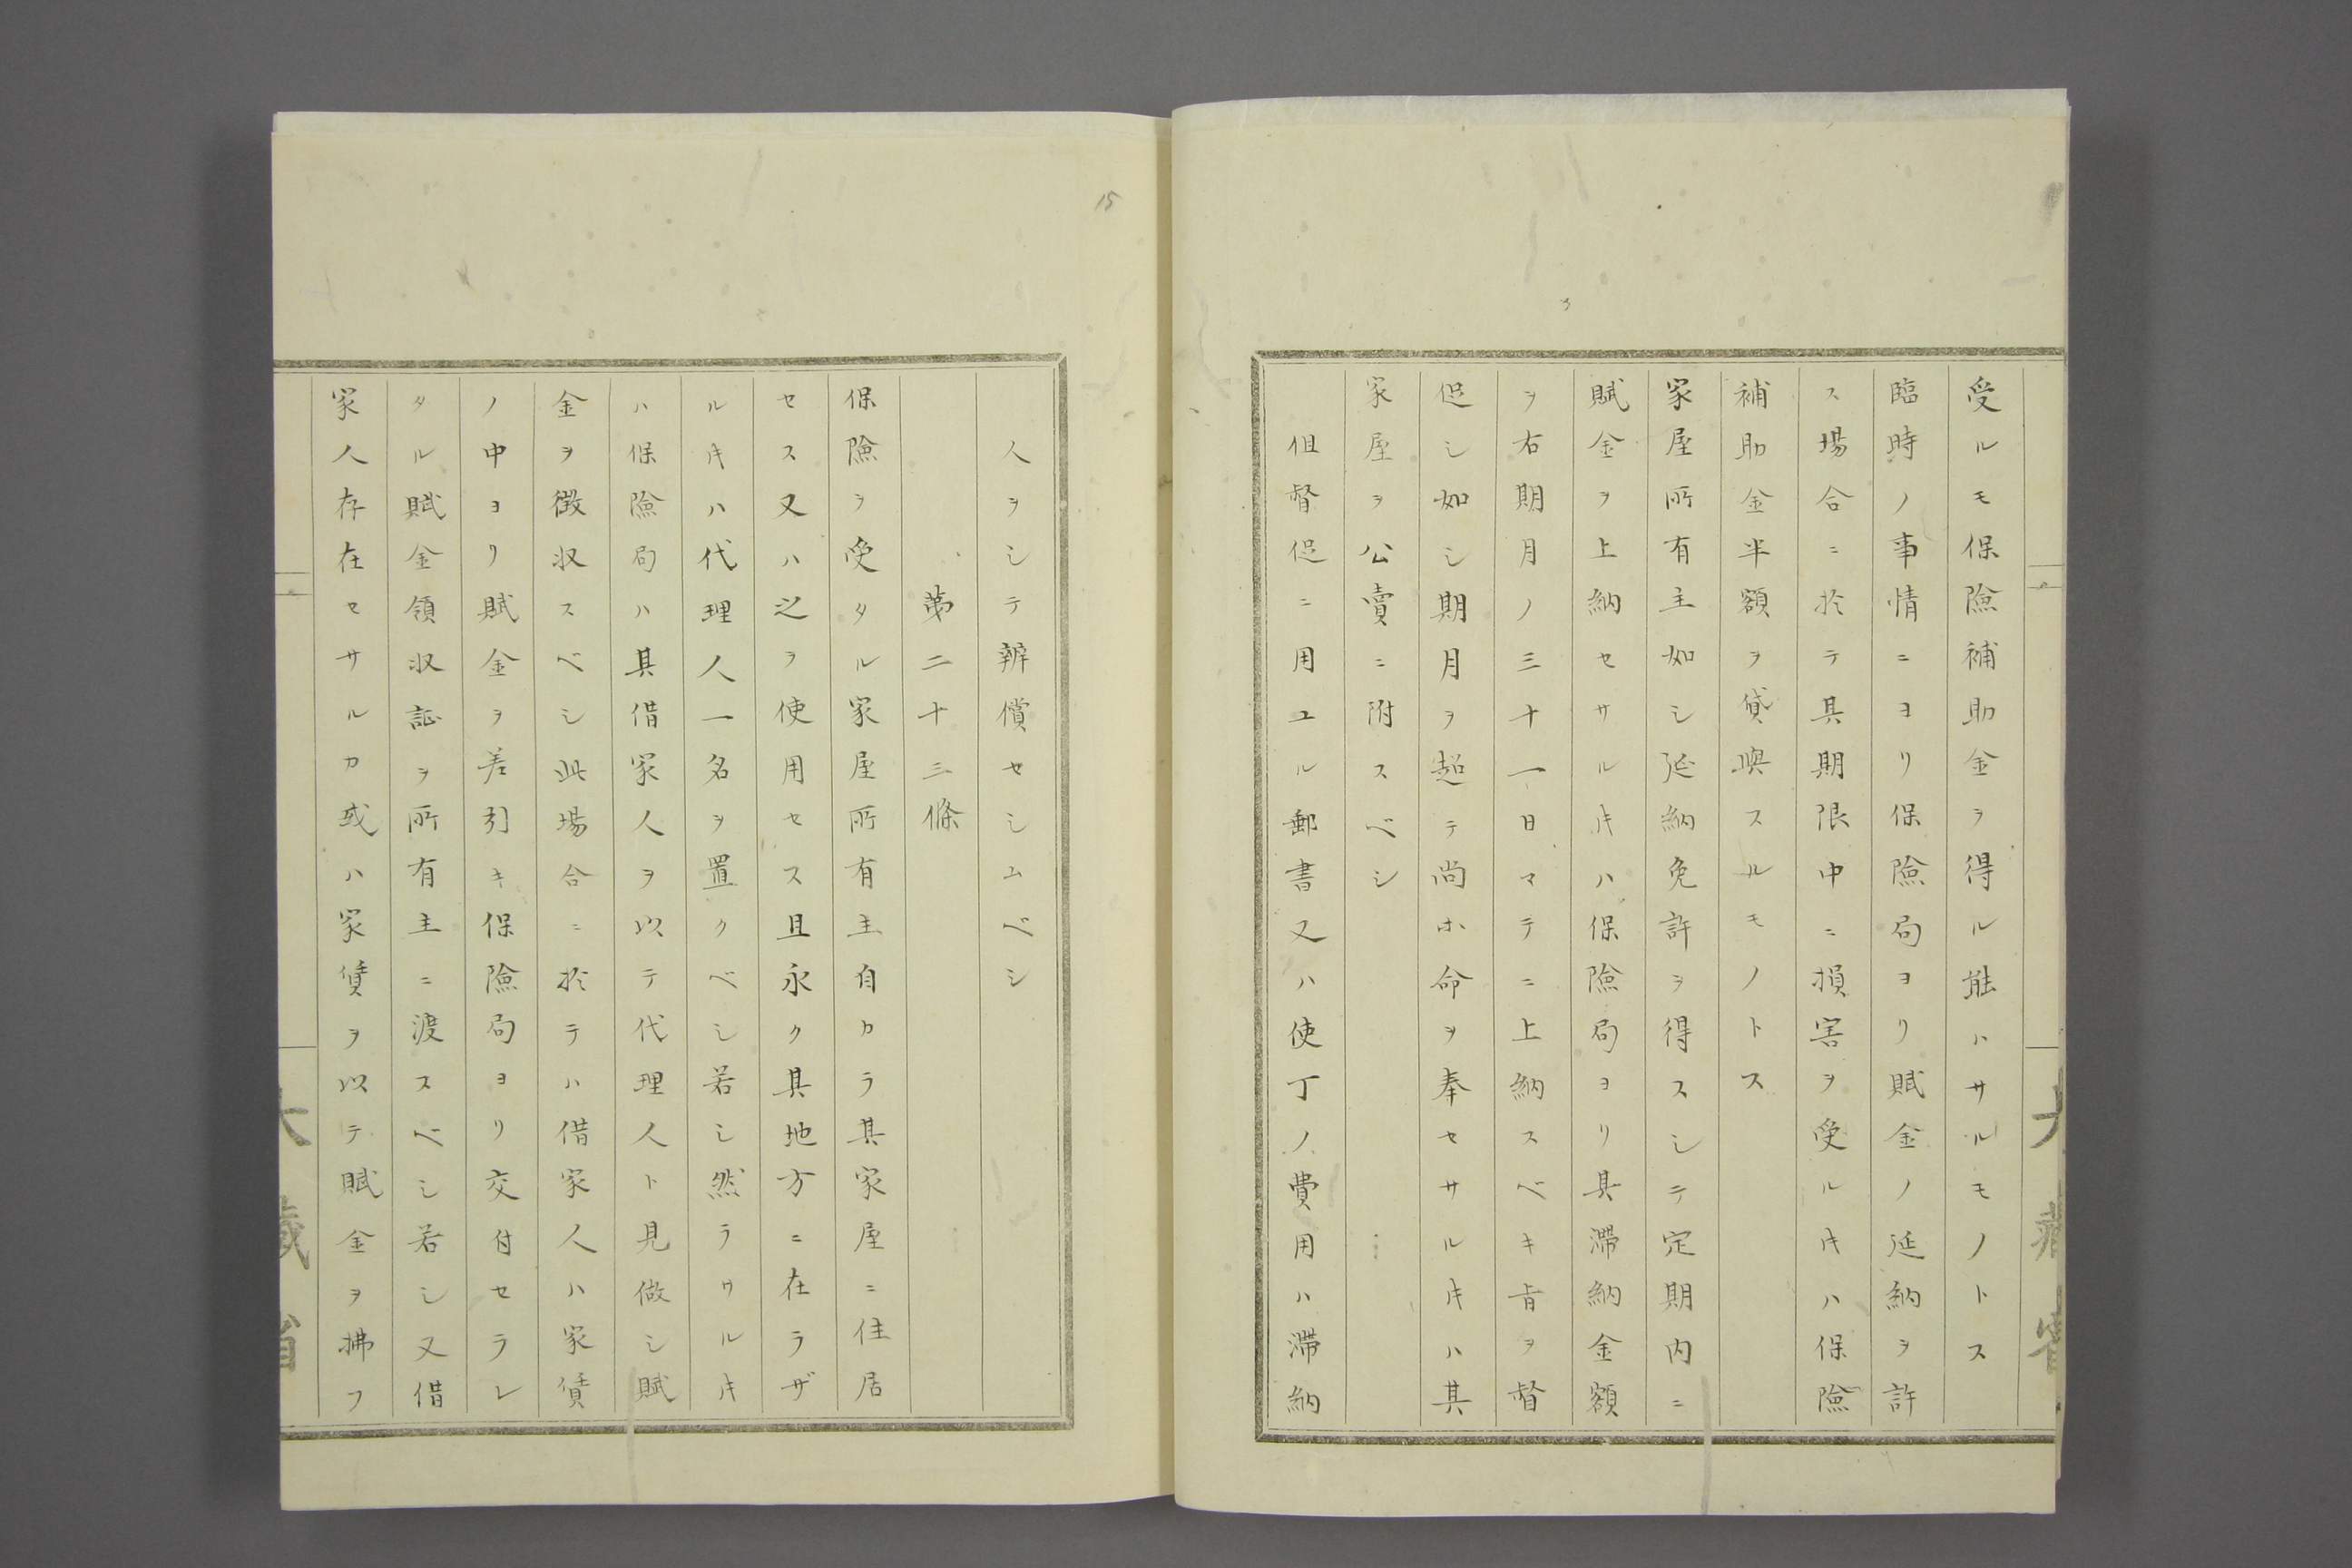 受ルモ保險補助金ヲ得ル能ハサルモノトス
臨時ノ事情ニヨリ保險局ヨリ賦金ノ延納ヲ許
ス場合ニ於テ其期限中ニ損害ヲ受ルキハ保險
補助金半額ヲ貸與スルモノトス
家屋所有主如シ延納免許ヲ得スシテ定期内ニ
賦金ヲ上納セサルキハ保險局ヨリ其滞納金額
ヲ右期月ノ三十一日マテニ上納スベキ旨ヲ督
促シ如シ期月ヲ超テ尚ホ命ヲ奉セサルキハ其
家屋ヲ公賣ニ附スベシ
但督促ニ用ユル郵書又ハ使丁ノ費用ハ滞納
大藏省
15
人ヲシテ辨償セシムベシ
第二十三條
保險ヲ受タル家屋所有主自カラ其家屋ニ住居
セス又ハ之ヲ使用セス且永ク其地方ニ在ラザ
ルキハ代理人一名ヲ置クベシ若シ然ラサルキ
ハ保險局ハ其借家人ヲ以テ代理人ト見做シ賦
金ヲ徴収スベシ此場合ニ於テハ借家人ハ家賃
ノ中ヨリ賦金ヲ差引キ保險局ヨリ交付セラレ
タル賦金領収証ヲ所有主ニ渡スベシ若シ又借
家人存在セサルカ或ハ家賃ヲ以テ賦金ヲ拂フ
大藏省